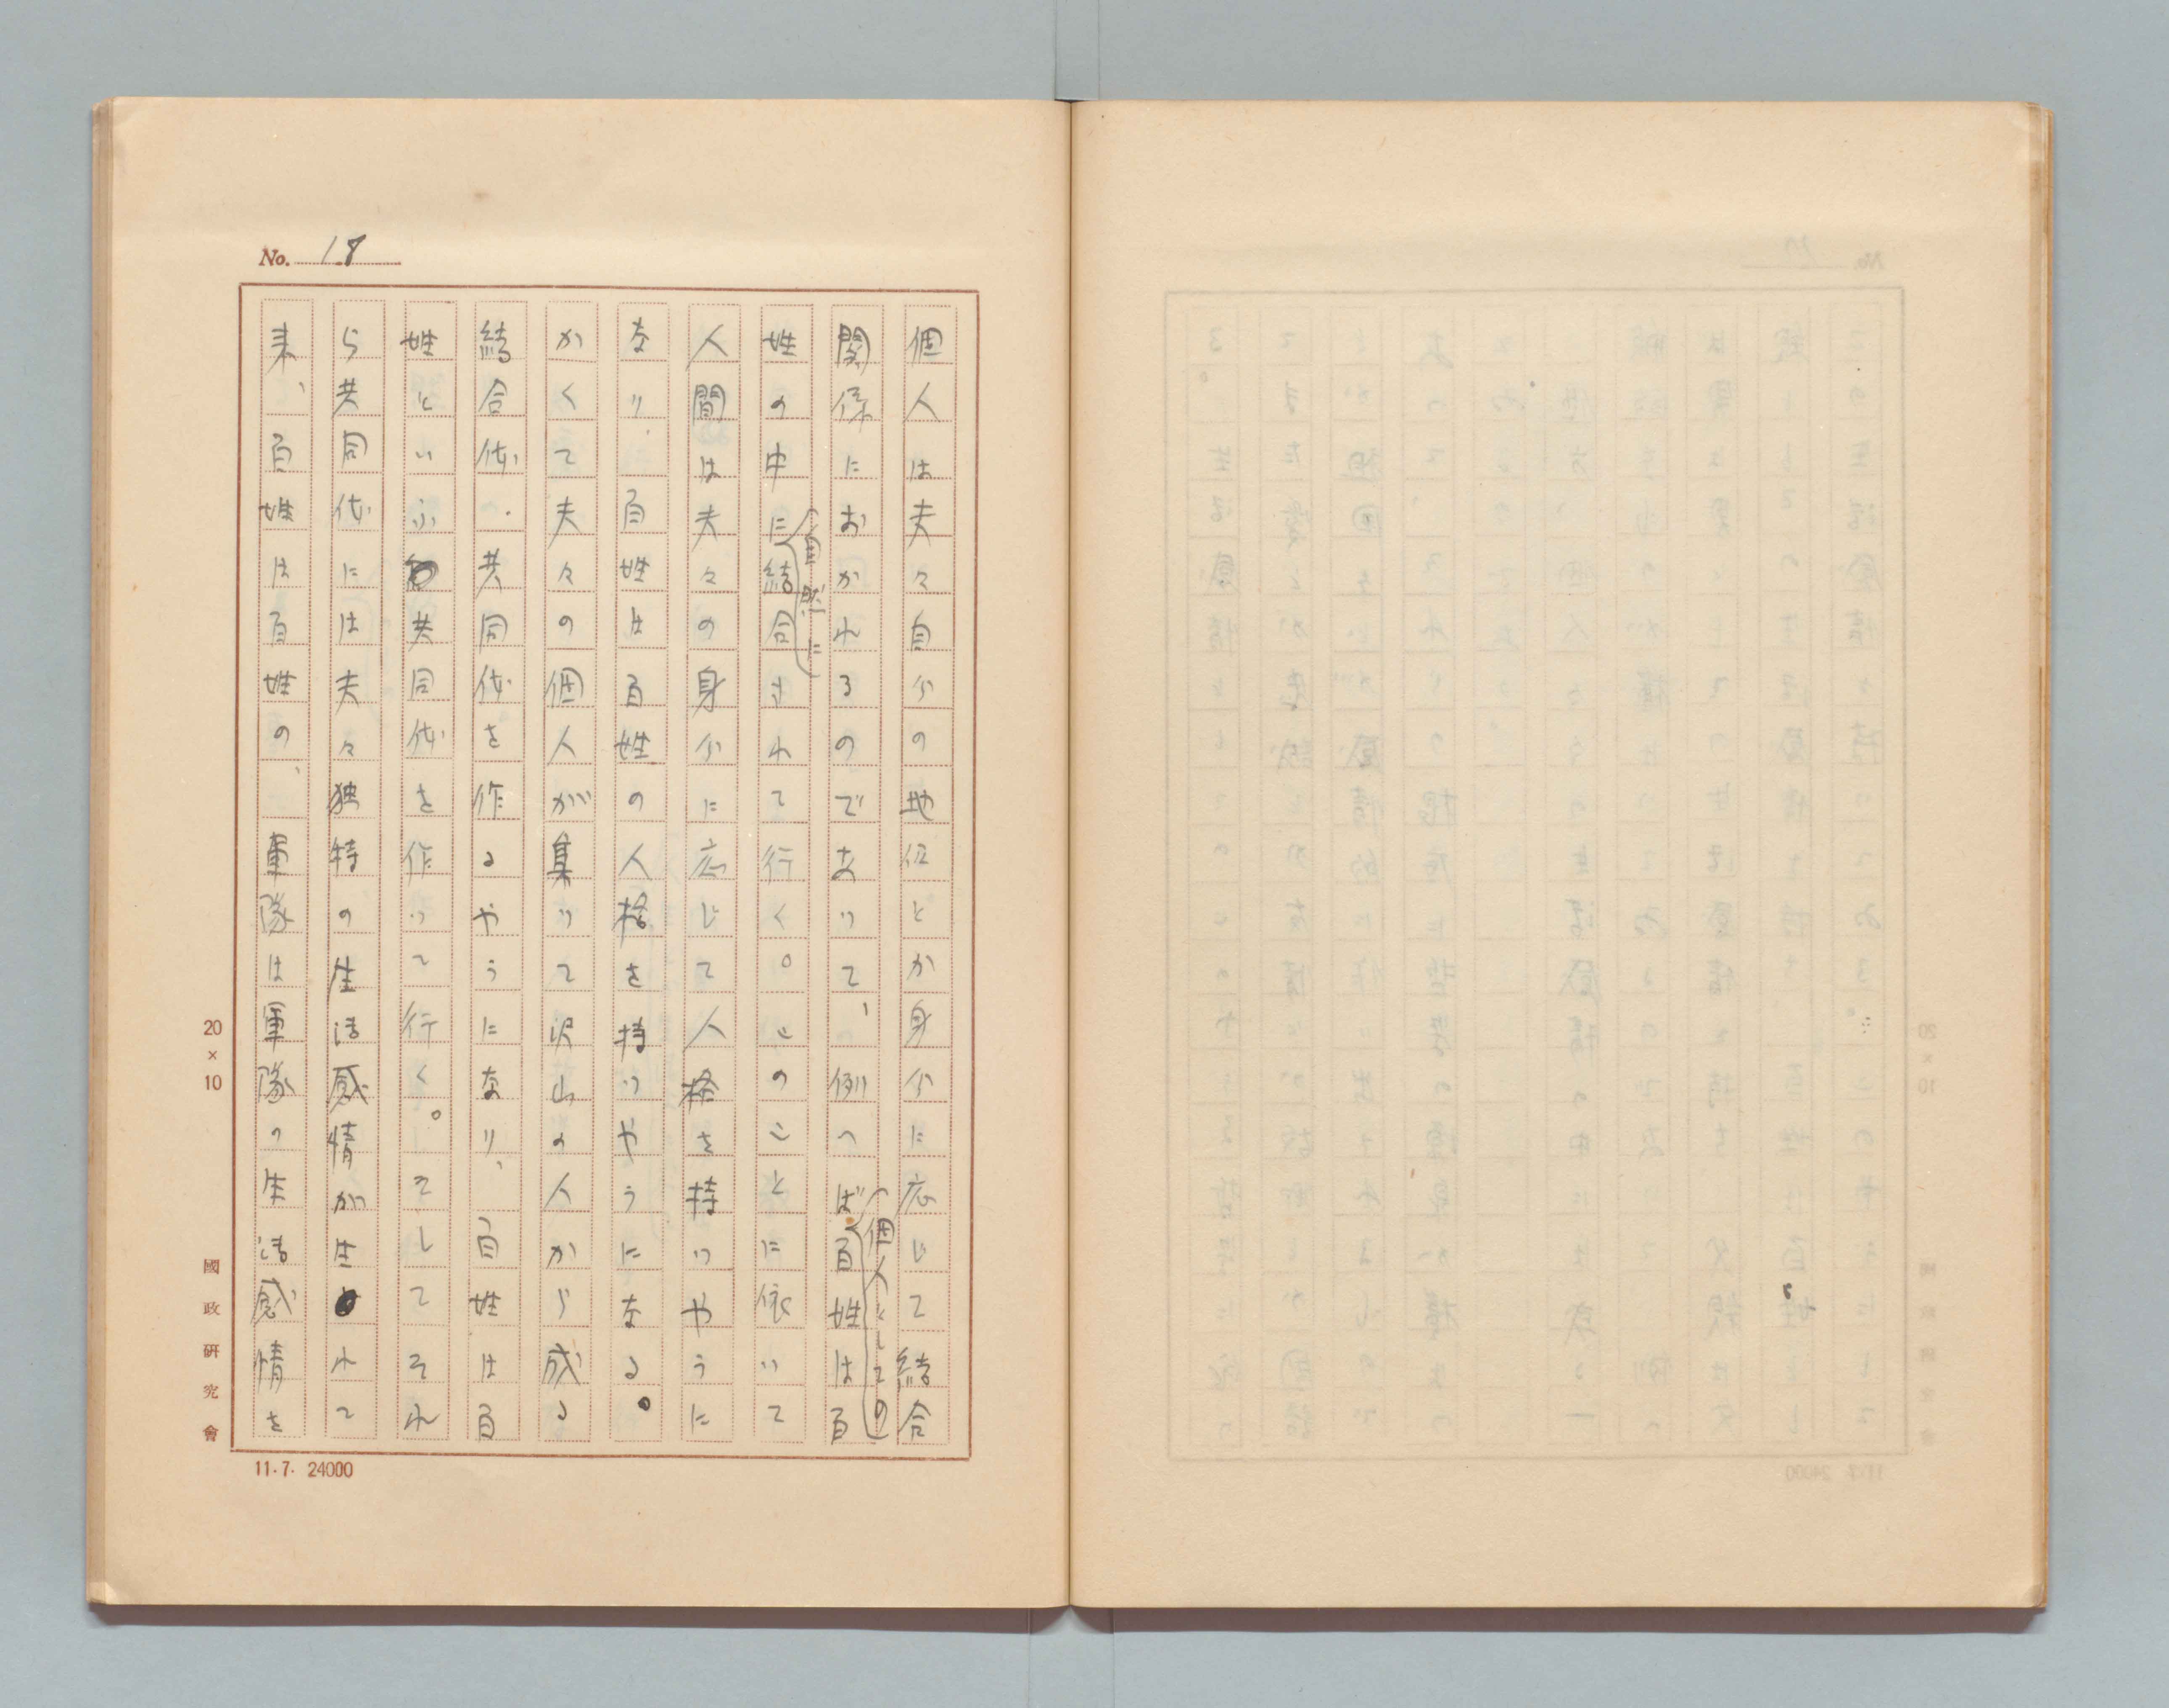 No. 18
個人は夫々自分の地位とか身分に応じて結合
関係におかれるのであって、例へば(個人としての)百姓は百
姓の中に(自然に)結合されて行く。このことに依って
人間は夫々の身分に応じて人格を持つやうに
なり、百姓は百姓の人格を持つやうになる。
かくて夫々の個人が集って沢山の人から成る
結合体・共同体を作るやうになり、百姓は百
姓といふ共同体を作って行く。そしてそれ
ら共同体には夫々独特の生活感情が生れて
来、百姓は百姓の、軍隊は軍隊の生活感情を
20×10
國政研究會
11.7. 24000